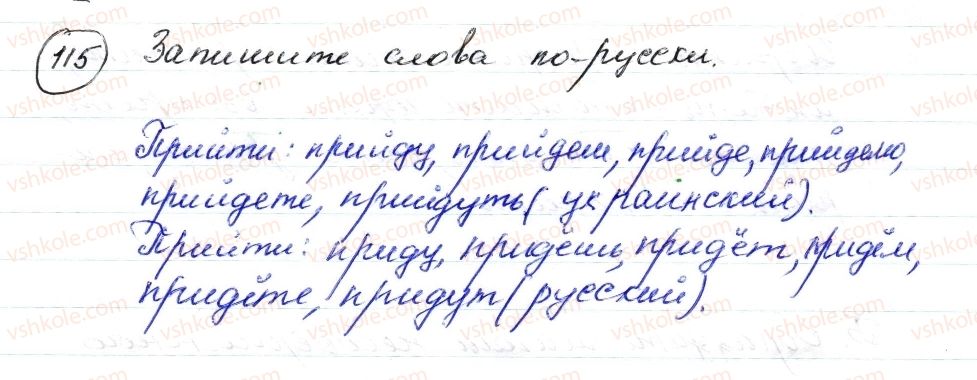 115 Запишите слова по-русски.
Прийти: прийду, прийдеш, прийде, прийдемо,
прийдете, прийдуть (украинский).
Прийти: приду, придёшь, придёт, придём,
придёте, придут (русский).